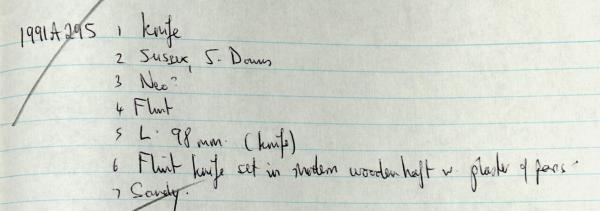 1991A295 1 Knife
2 Sussex, S. Downs
3 Neo?
4 Flint
5 L. 98 mm. (knife)
6 Flint knife set in modern wooden haft w. plaster of paris.
7 Sandy.